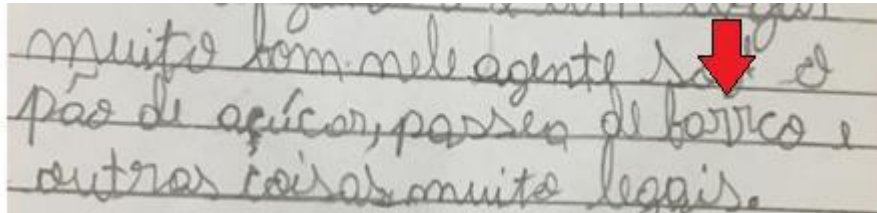 muito bom. nele agente so o
pão de açúcar, passea de barrco e
outras coisas muito legais.